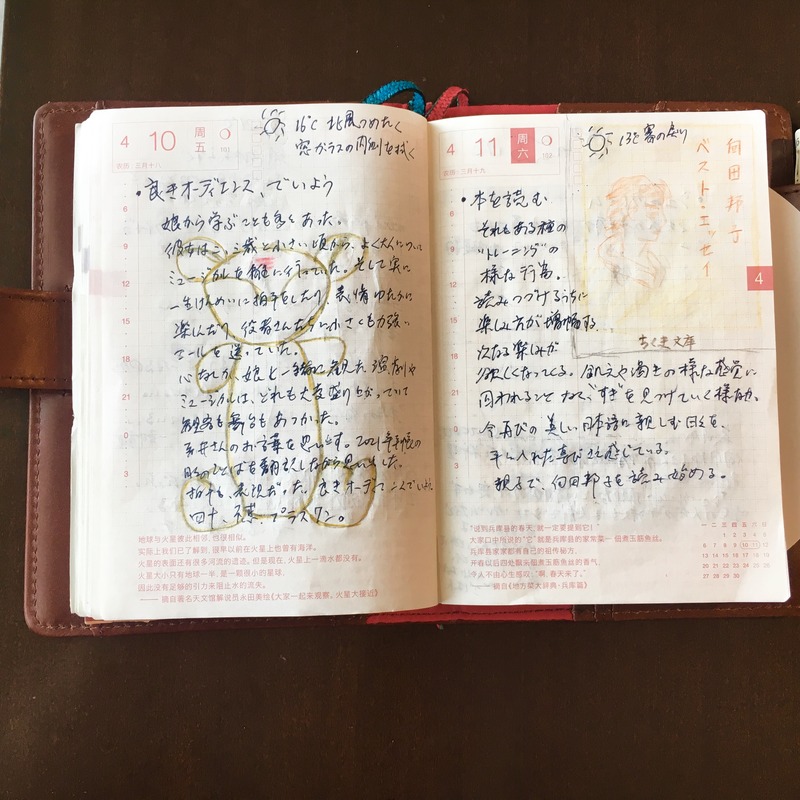 4 10 周五
101
农历·三月十八
16℃ 北風つめたく
窓ガラスの内側を拭く
・良きオーディエンス、でいよう
娘から学ぶことも多くあった。
彼女は二、三歳と小さい頃から、よく
ミュージカルを観に行っていた。そして実に
一生けんめいに拍手をしたり、表情ゆたかに
楽しんだり、役者さんたちに小さくも力強い
エールを送っていた。
心なしか娘と一緒に観た演劇や
ミュージカルは、どれも大変盛り上がっていて
観客も舞台もあつかった。
さんのお言葉を思い出す。2021年手帳の
のことばを翻訳しながら思い出した。
拍手も、表現だった。良きオーディエンスでいよう。
四十、プラスワン。
6
9
12
15
18
21
0
3
地球与火星彼此相邻,也很相似。
实际上我们已了解到,很早以前在火星上也曾有海洋。
火星的表面还有很多河流的遗迹。但是现在,火星上一滴水都没有。
火星大小只有地球一半,是一颗很小的星球,
因此没有足够的引力来阻止水的流失。
—— 摘自著名天文馆解说员永田美绘《大家一起来观察,火星大接近》
4 11 周六
102
农历·三月十九
13℃ 寒の戻り
向田邦子
ベスト・エッセイ
ちくま文庫
4
・本を読む
それもある種の
"トレーニング"の
様な行為。
読みつづけるうちに
楽しみ方が増幅する。
次なる楽しみが
欲しくなってくる。飢えや渇きの様な感覚に
囚われることなく"すき"を見つけていく様な
今再びの美しい日本語に親しむ日々を、
手に入れた喜びさえ感じている。
親子で、向田邦子を読み始める。
6
9
12
15
18
21
0
3
"说到兵库县的春天,就一定要提到它!"
大家口中所说的"它"就是兵库县的家常菜—佃煮玉筋鱼丝。
兵库县家家都有自己的祖传秘方,
开春以后四处飘采佃煮玉筋鱼丝的香气,
令人不由心生感叹:"啊,春天来了。"
—— 摘自《地方菜大辞典·兵库篇》
一 二 三 四 五 六 日
1 2 3 4 5
6 7 8 9 10 11 12
13 14 15 16 17 18 19
20 21 22 23 24 25 26
27 28 29 30